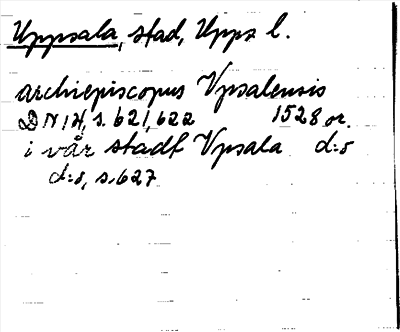 Uppsala, stad, Upps l.
archiepiscopus Vpsalensis
DN 14, s. 621, 622 1528 or.
i vår stadt Vpsala d:o
d:o, s. 627